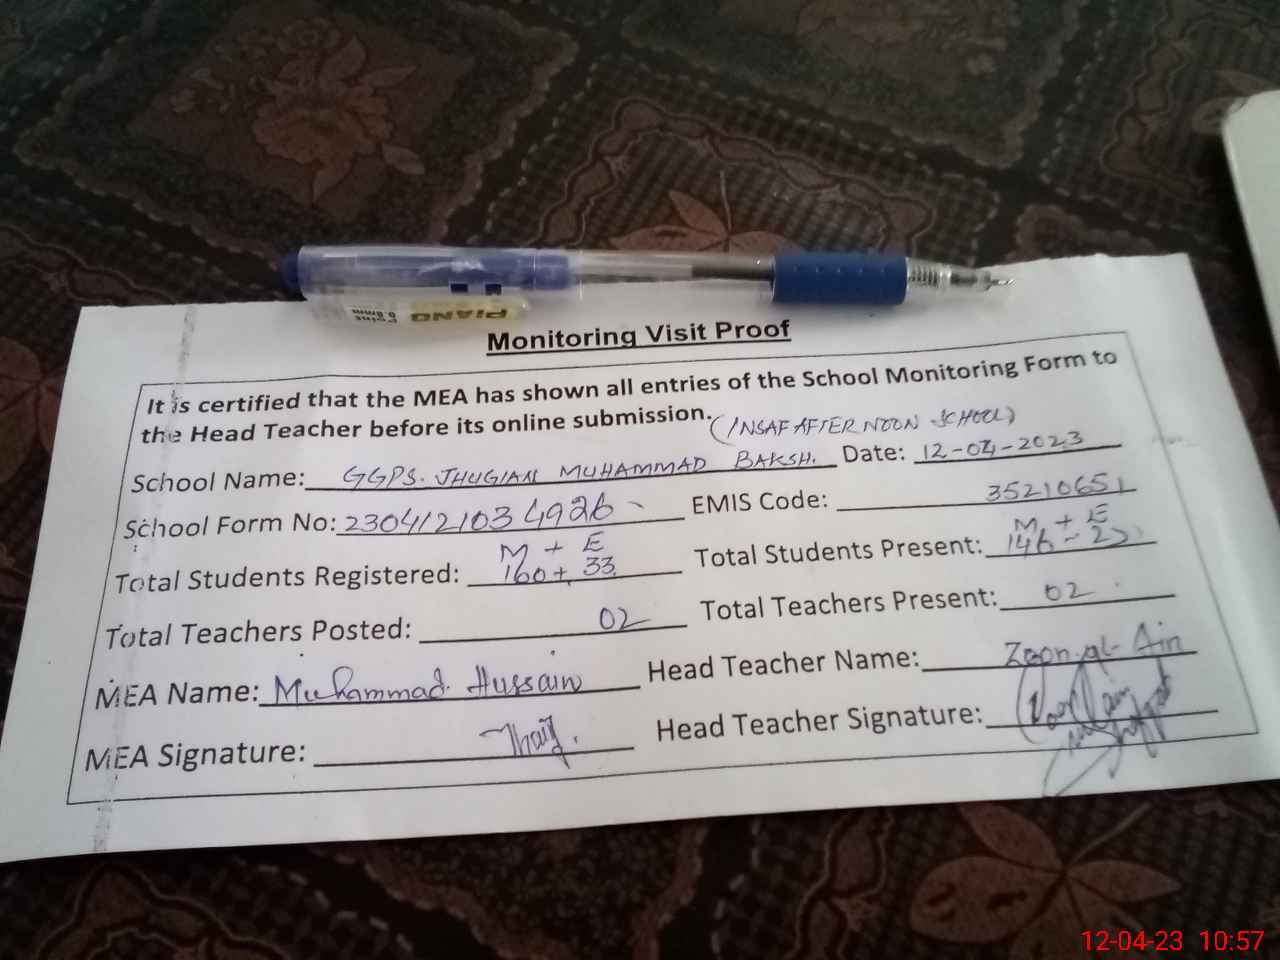 PIANO
Point
0.8mm
Monitoring Visit Proof
It is certified that the MEA has shown all entries of the School Monitoring Form to
the Head Teacher before its online submission.
(INSAF AFTER NOON SCHOOL)
School Name: GGPS. JHUGIAN MUHAMMAD BAKSH. Date: 12-04-2023
School Form No: 2304121034926 EMIS Code: 35210651
M + E M + E
Total Students Registered: 160 + 33 Total Students Present: 146 -
Total Teachers Posted: 02 Total Teachers Present: 02
MEA Name: Muhammad Hussain Head Teacher Name: Ain
MEA Signature: Head Teacher Signature:
12-04-23 10:57